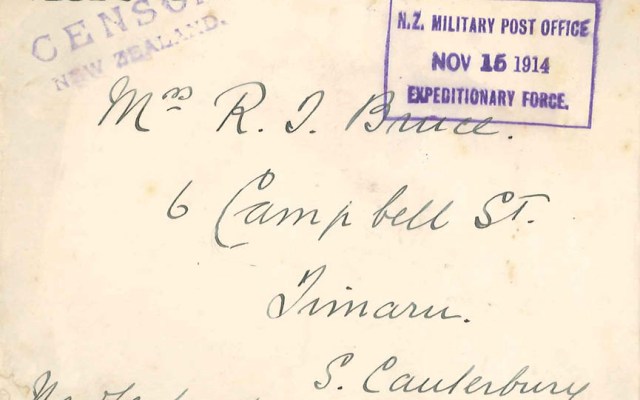 CENSOR
NEW ZEALAND.
N.Z. MILITARY POST OFFICE
NOV 15 1914
EXPEDITIONARY FORCE.
Mrs R. J. Bruce.
6 Campbell St.
Timaru.
S. Canterbury